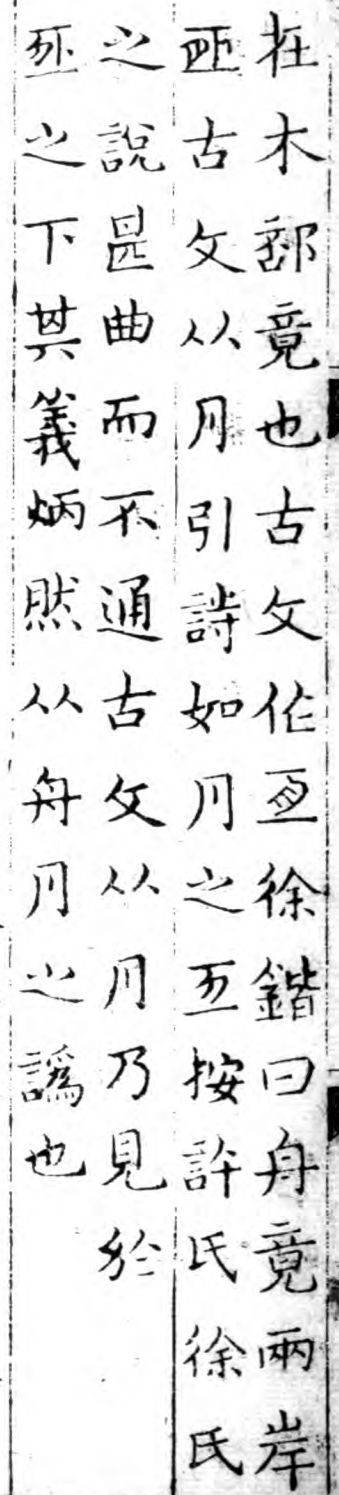 在木部竟也古文作亙徐鍇曰舟竟兩岸
𠄨古文从月引詩如月之亙按許氏徐氏
之說甚曲而不通古文从月乃見於
𠄨之下其義炳然从舟月之譌也